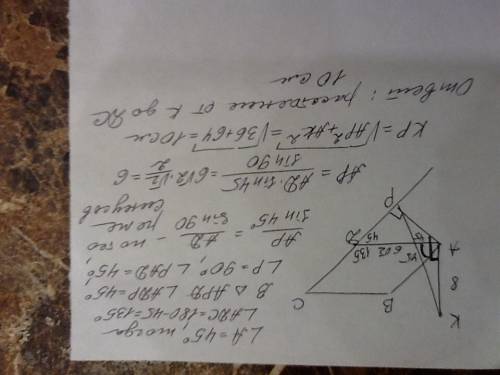 ∠A = 45°, тогда
∠ADC = 180 - 45 = 135°
В △ APD ∠ADP = 45°
∠P = 90°, ∠PAD = 45°,
AP/sin 45° = AD/sin 90 - по теореме
синусов
AP = AD · sin 45/sin 90 = 6√2 · √2/2 = 6
KP = √AP² + AK² = √36 + 64 = 10 см
Ответ: расстояние от K до DC
10 см
K
8
A
B
C
D
P
45
6√2
135
45